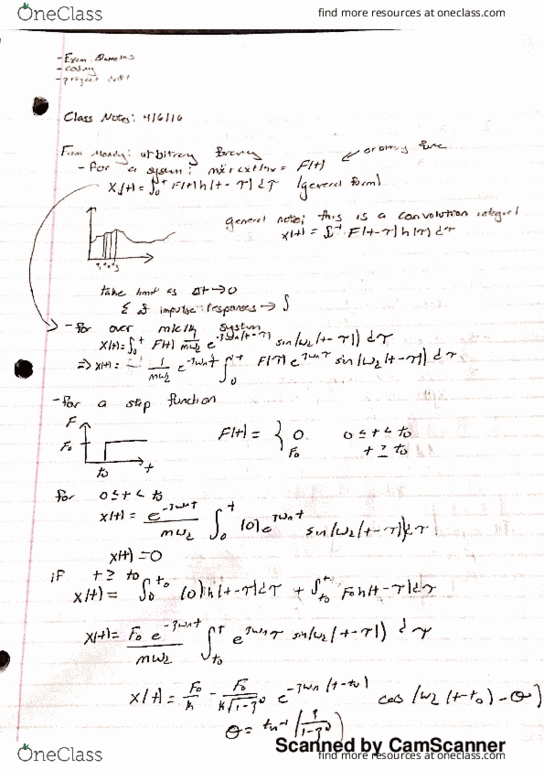 OneClass
find more resources at oneclass.com
- Exam:
-
- project
Class Notes: 4/6/16
From Monday: arbitrary forcing
arbitrary func
- for a system: mẍ+cẋ+kx = F(t)
x(t) = ∫₀ᵗ F(τ)h(t-τ)dτ (general form)
general note: this is a convolution integral
x(t) = ∫₀ᵗ F(t-τ)h(τ)dτ
take limit as Δt→0
Σ of impulse responses → ∫
- for over m/c/k system
x(t)=∫₀ᵗ F(τ) 1/(mωd) e^(-ζωn(t-τ)) sin(ωd(t-τ))dτ
⇒ x(t) = 1/(mωd) e^(-ζωnt) ∫₀ᵗ F(τ)e^(ζωnτ) sin(ωd(t-τ))dτ
- for a step function
F
F₀
t₀
t
F(t) = { 0 0≤t<t₀
F₀ t≥t₀
for 0≤t<t₀
x(t) = e^(-ζωnt)/(mωd) ∫₀ᵗ (0)e^(ζωnτ) sin(ωd(t-τ))dτ
x(t)=0
if t≥t₀
x(t) = ∫₀^t₀ (0)h(t-τ)dτ + ∫_t₀^t F₀h(t-τ)dτ
x(t) = F₀e^(-ζωnt)/(mωd) ∫_t₀^t e^(ζωnτ) sin(ωd(t-τ))dτ
x(t) = F₀/k - F₀/(k√(1-ζ²)) e^(-ζωn(t-t₀)) cos(ωd(t-t₀)-θ)
θ = tan⁻¹(ζ/√(1-ζ²))
Scanned by CamScanner
OneClass
find more resources at oneclass.com